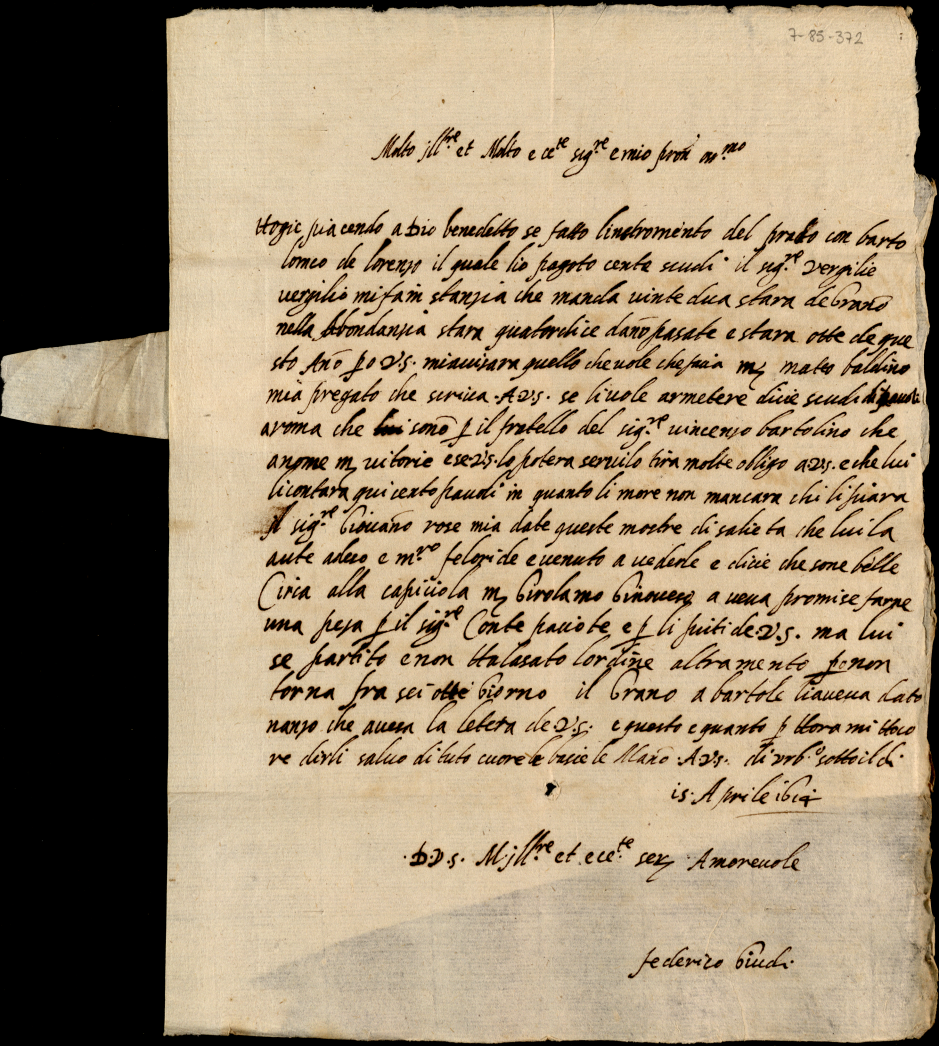 7-85-372
Molto jll.re et Molto e ce.te sig.re e mio pron
Hogie piacendo a Dio benedetto se fatto linstromento del prato con barto
lomeo de lorenzo il quale lio pagoto cente scudi il sig.re vergilie
vergilio mi fa in stanzia che manda vinte dua stara de Grano
nella bbondanzia stara quatordice dano pasate e stara otte de que
sto Ano p o V.S. mi avisara quello che vole che facia m matto baldino
mia pregato che scriva A V.S. se li vole armetere dicie scudi di pauoli
a roma che lui sono p il fratello del sig.re vincenzo bartolino che
a nome m vitorie e se V.S. lo potera servilo tira molte obligo a V.S. e che lui
li contara qui cento pauoli in quanto li more non mancara chi li piara
il sig.re Giovano rose mia date queste mostre di salieta che lui la
aute adeso e m.ro feloride e venuto a vedede e dicie che sone belle
Circa alla capiciola m Girolamo Ginovese a veva promise farne
una peza p il sig.re Conte paciote e p li puiti de V.S. ma lui
se partito e non Ha lasato lordine altramento p o non
torna fra sei otte Giorno il Grano a bartole li aveva dato
nanzo che avesa la letera de V.S. e questo e quanto p Hora mi Hoco
re dirli salvo di tuto cuore le bacie le Mano A V.S. di vrb.o sotto il di
is Aprile
D.V.S. M. jll.re et ece.te ser Amorevole
federico Giudi